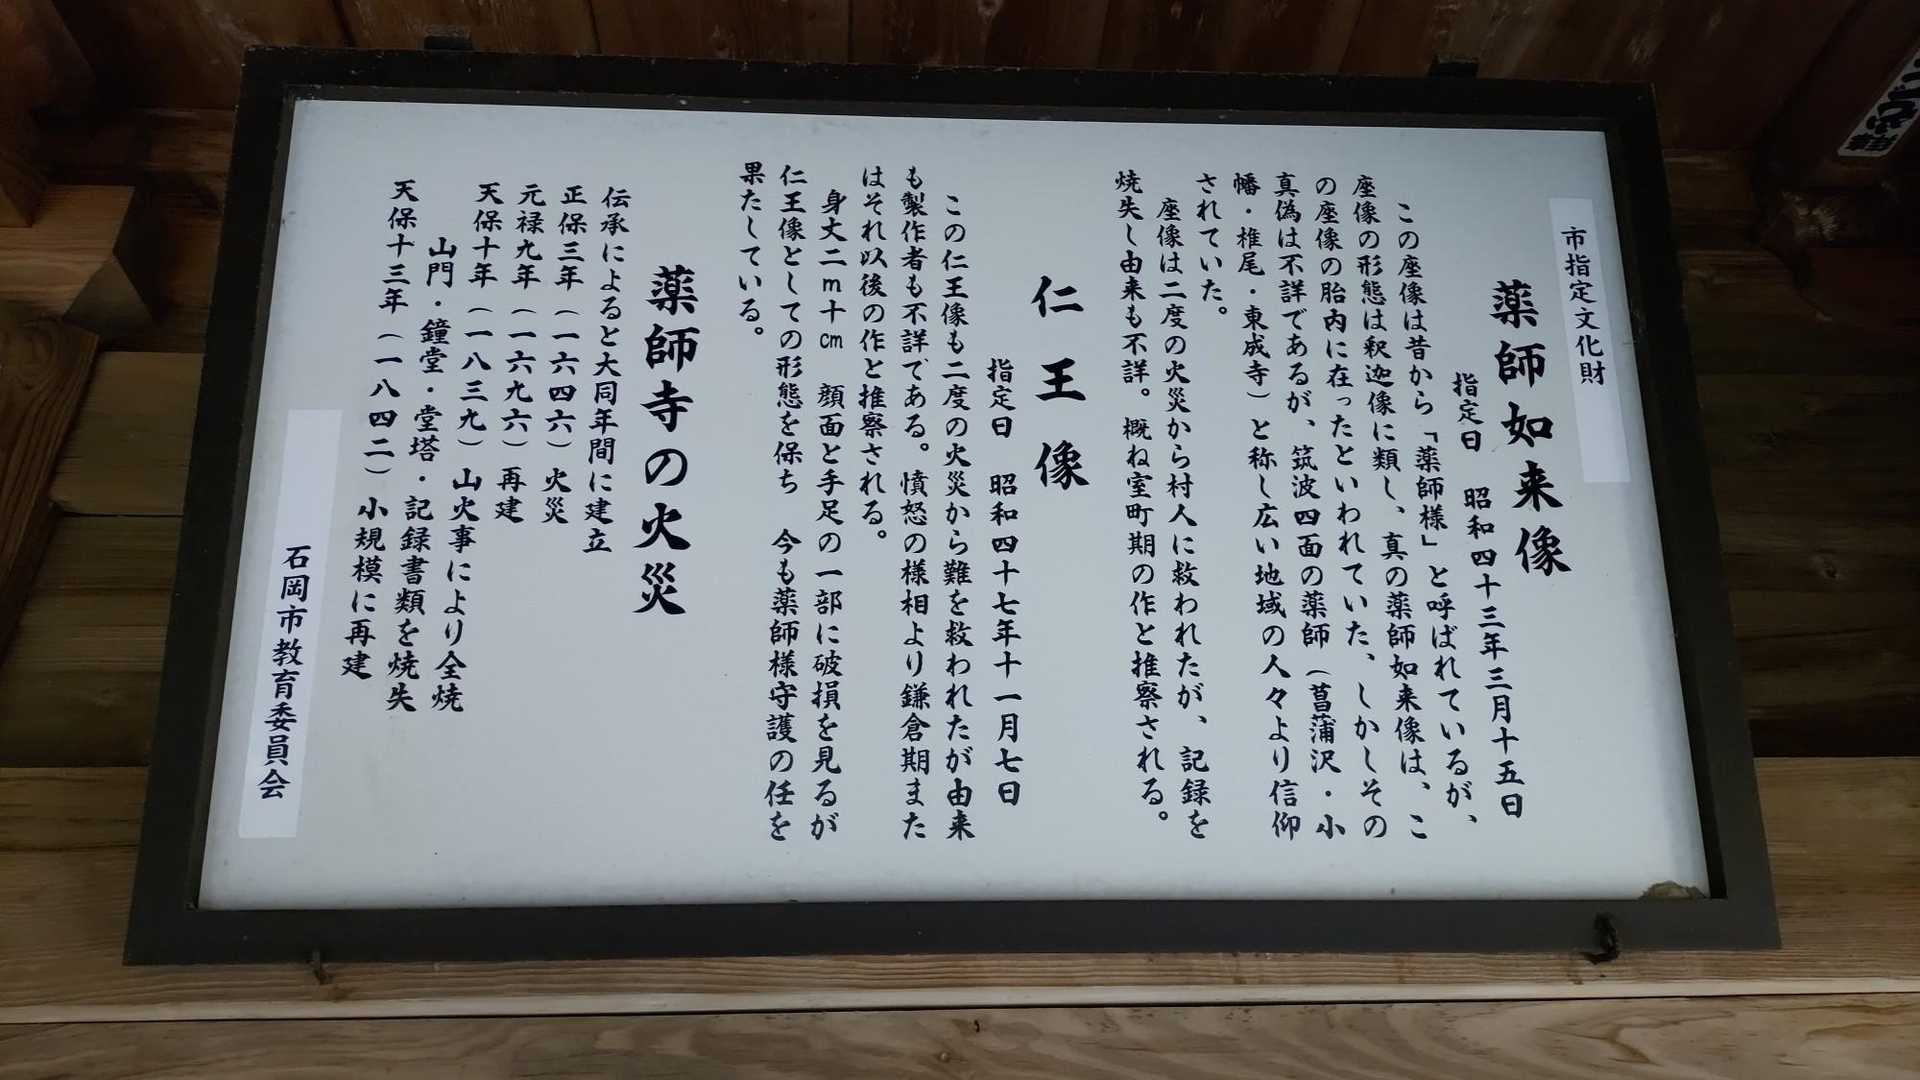 市指定文化財
薬師如来像
指定日　昭和四十三年三月十五日
この座像は昔から「薬師様」と呼ばれているが、
座像の形態は釈迦像に類し、真の薬師如来像は、こ
の座像の胎内に在ったといわれていた、しかしその
真偽は不詳であるが、筑波四面の薬師（菖蒲沢・小
幡・椎尾・東成寺）と称し広い地域の人々より信仰
されていた。
座像は二度の火災から村人に救われたが、記録を
焼失し由来も不詳。概ね室町期の作と推察される。
仁王像
指定日　昭和四十七年十一月七日
この仁王像も二度の火災から難を救われたが由来
も製作者も不詳である。憤怒の様相より鎌倉期また
はそれ以後の作と推察される。
身丈二m十㎝　顔面と手足の一部に破損を見るが
仁王像としての形態を保ち　今も薬師様守護の任を
果たしている。
薬師寺の火災
伝承によると大同年間に建立
正保三年（一六四六）火災
元禄九年（一六九六）再建
天保十年（一八三九）山火事により全焼
山門・鐘堂・堂塔・記録書類を焼失
天保十三年（一八四二）小規模に再建
石岡市教育委員会